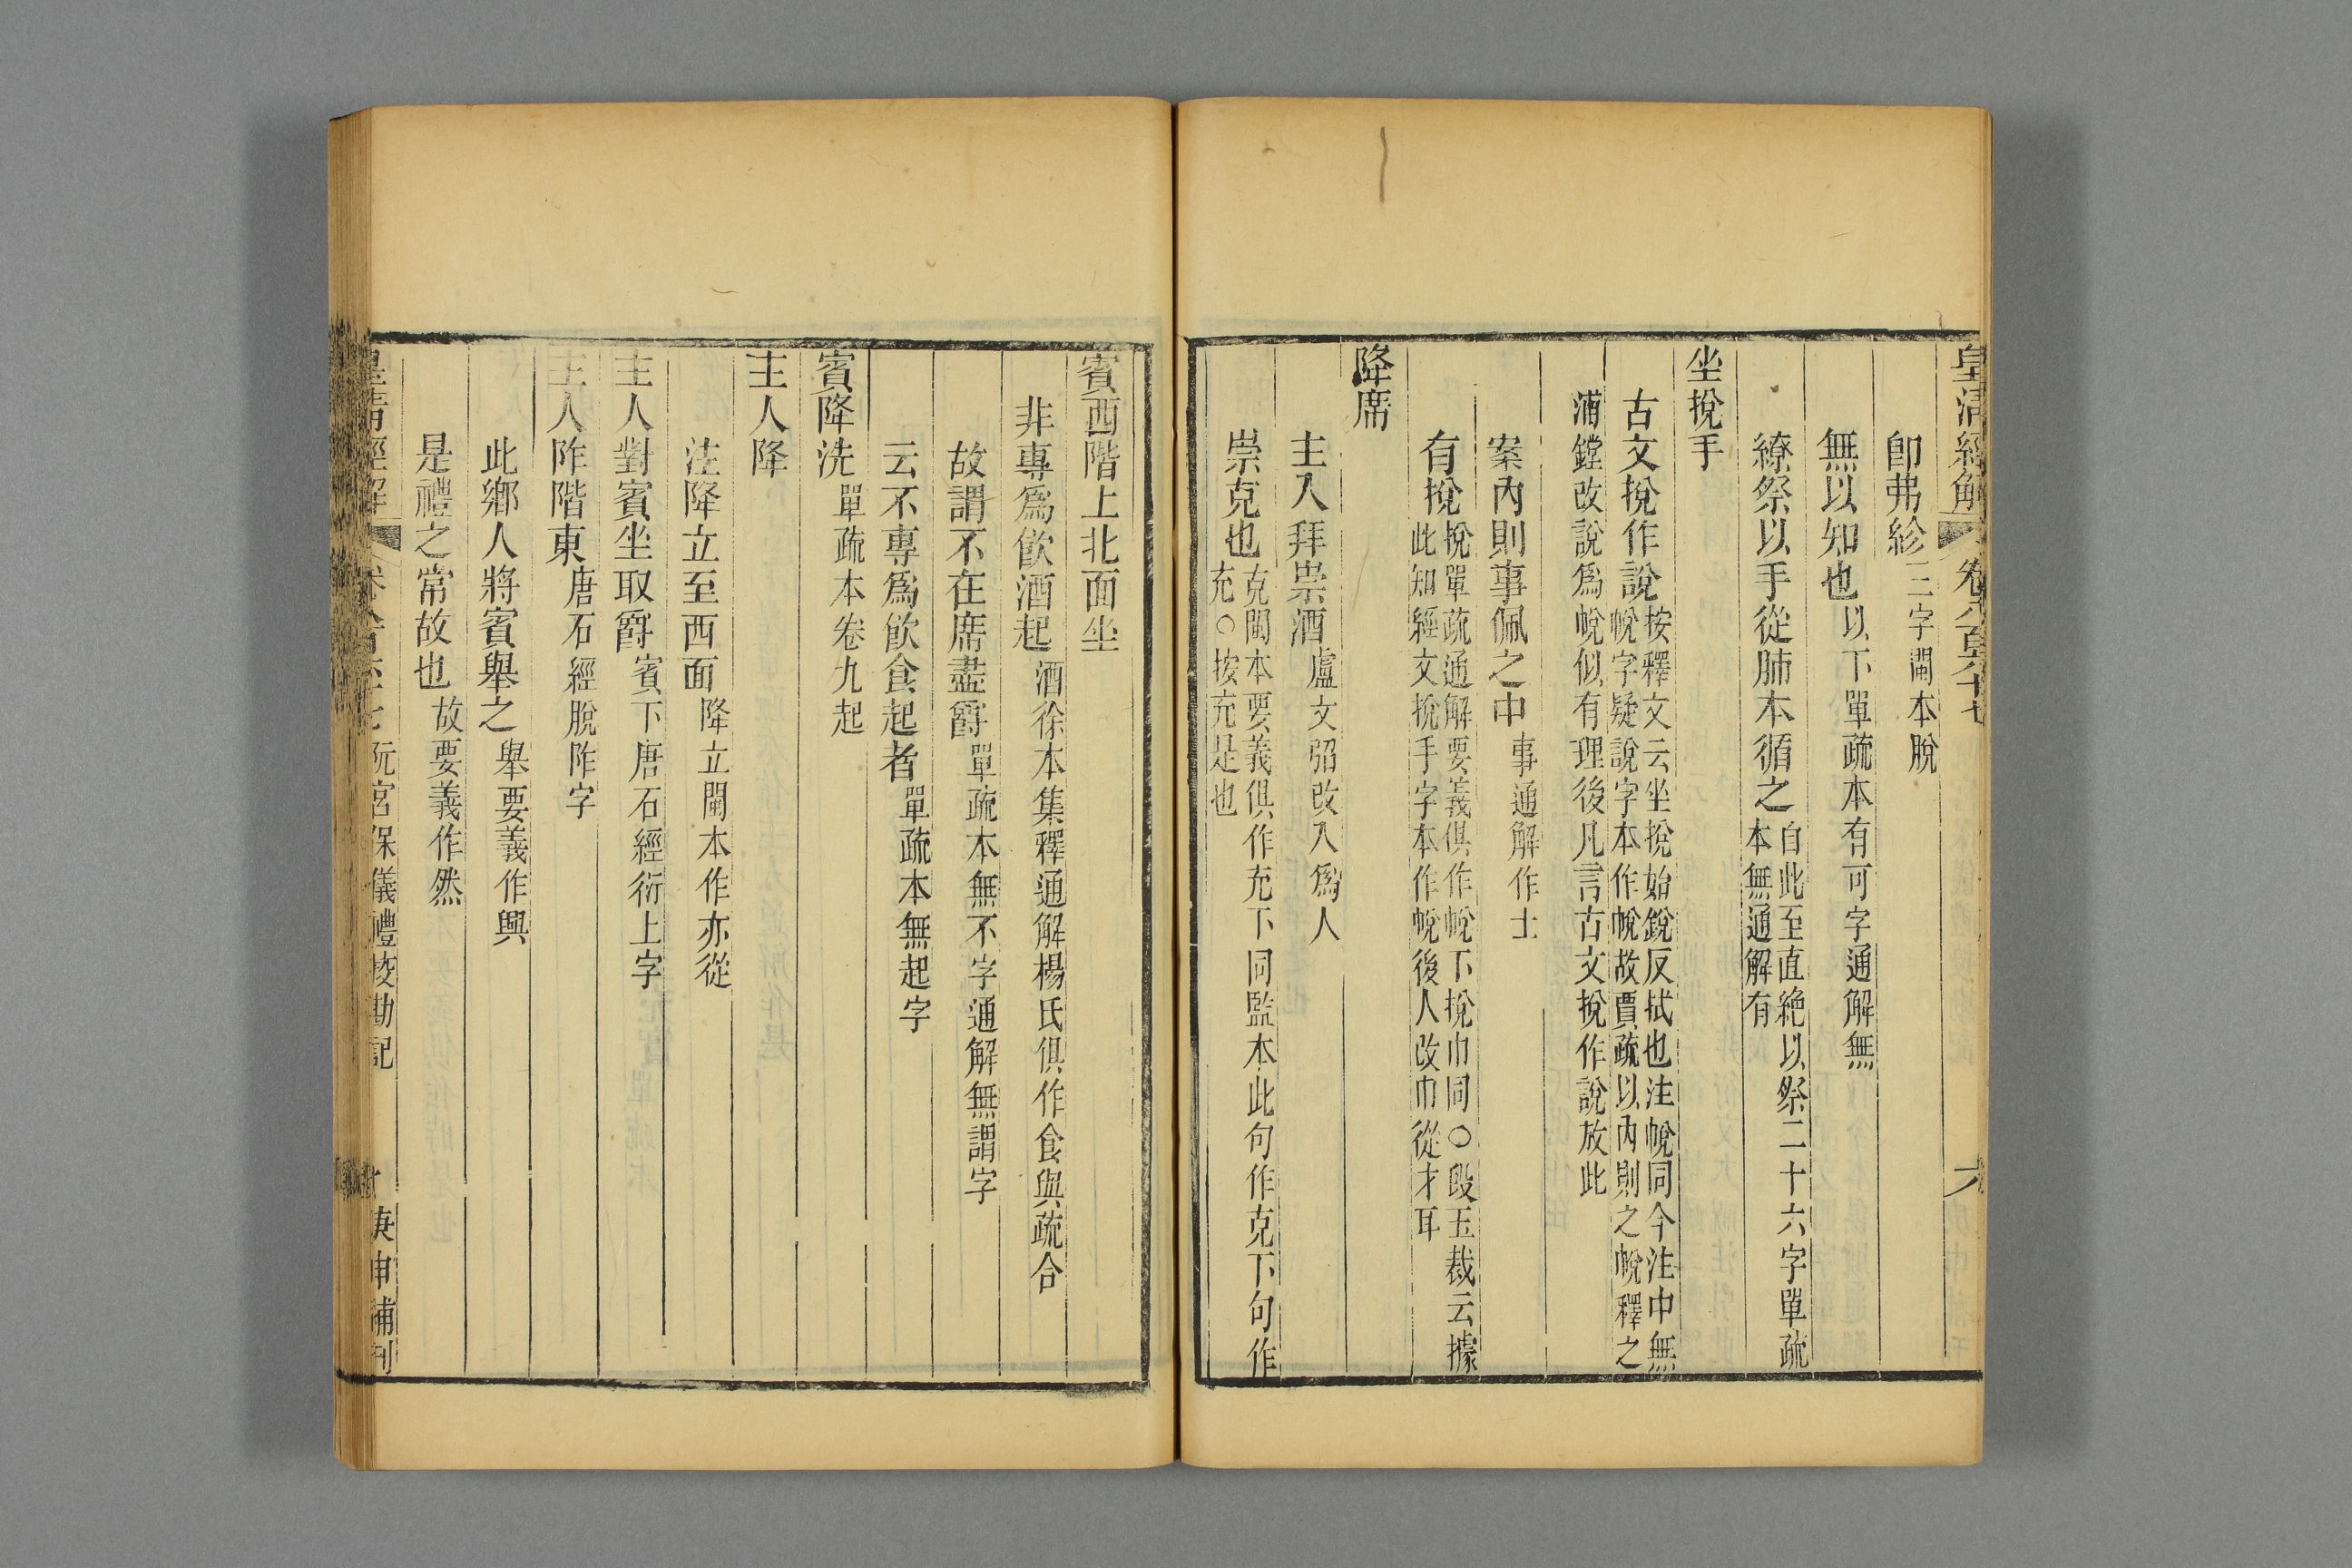 皇清經解 卷八百六十七 六
卽弗紾三字閩本脫
無以知也以下單疏本有可字通解無
繚祭以手從肺本循之自此至直絶以祭二十六字單疏
本無通解有
坐挩手
古文挩作說按釋文云坐挩始銳反拭也注帨同今注中無
帨字疑說字本作帨故賈疏以內則之帨釋之
浦鏜改說爲帨似有理後凡言古文挩作說放此
案內則事佩之中事通解作士
有挩挩單疏通解要義俱作帨下挩巾同○段玉裁云據
此知經文挩手字本作帨後人改巾從才耳
降席
主入拜崇酒盧文弨改入爲人
崇克也克閩本要義俱作充下同監本此句作克下句作
充○按充是也
賓西階上北面坐
非專爲飮酒起酒徐本集釋通解楊氏俱作食與疏合
故謂不在席盡爵單疏本無不字通解無謂字
云不專爲飮食起者單疏本無起字
賓降洗單疏本卷九起
主人降
注降立至西面降立閩本作亦從
主人對賓坐取爵賓下唐石經衍上字
主人阼階東唐石經脫阼字
此鄉人將賓舉之舉要義作興
是禮之常故也故要義作然
皇清經解 卷八百六十七 阮宮保儀禮挍勘記 庚申補刊